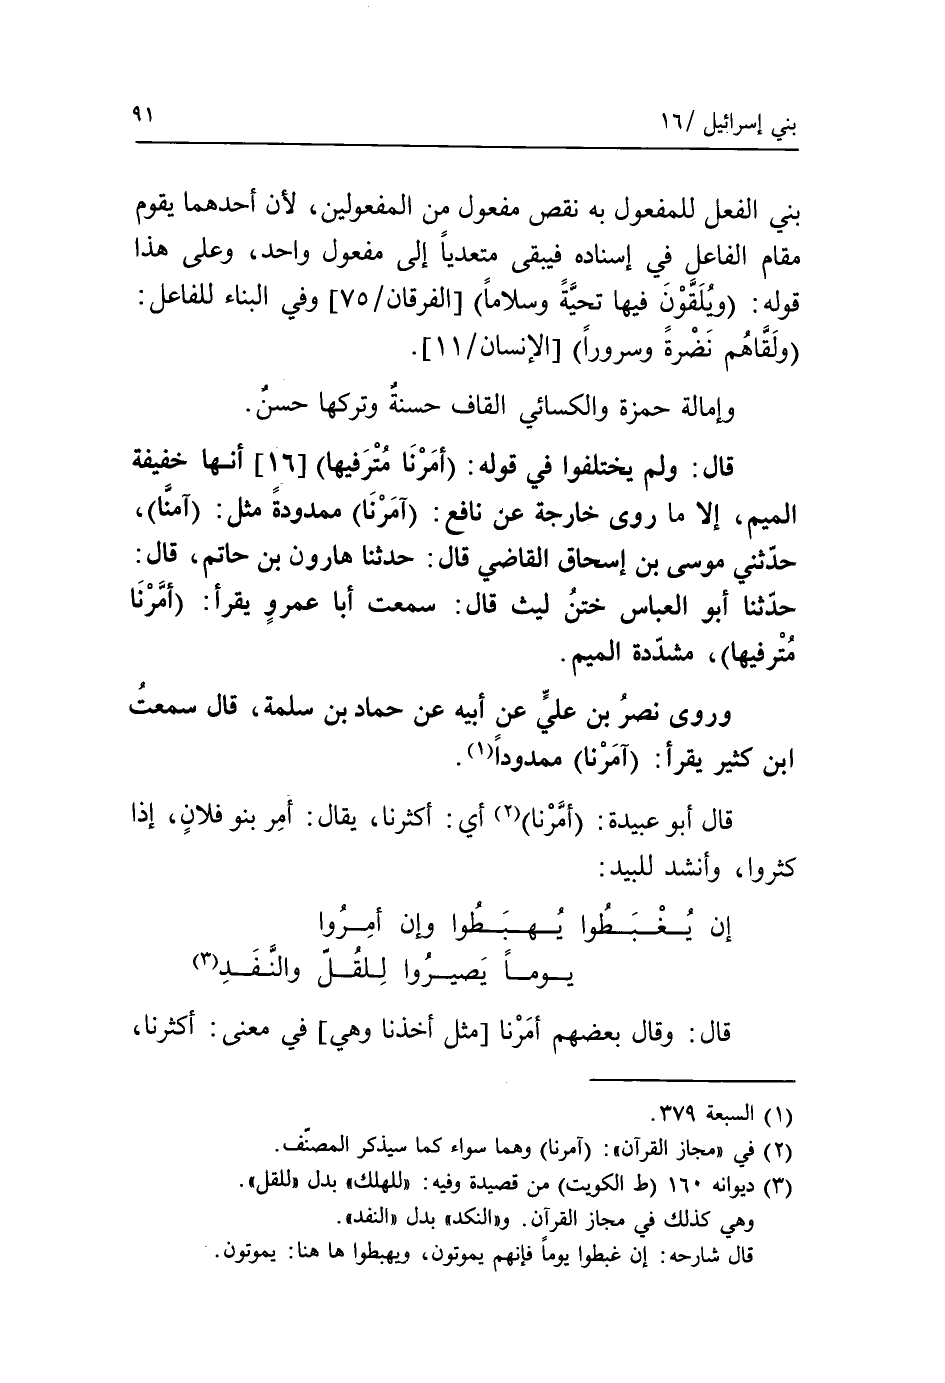 بني إسرائيل /١٦
٩١
بني الفعل للمفعول به نقص مفعول من المفعولين، لأن أحدهما يقوم
مقام الفاعل في إسناده فيبقى متعدياً إلى مفعول واحد، وعلى هذا
قوله: (ويُلَقَّوْنَ فيها تحيَّةً وسلاماً) [الفرقان/٧٥] وفي البناء للفاعل:
(ولَقَّاهُم نَضْرةً وسروراً) [الإنسان/١١].
وإمالة حمزة والكسائي القاف حسنةٌ وتركها حسنٌ.
قال: ولم يختلفوا في قوله: (أمَرْنَا مُتْرَفيها) [١٦] أنـها خفيفة
الميم، إلا ما روى خارجة عن نافع: (آمَرْنَا) ممدودةً مثل: (آمنَّا)،
حدّثني موسى بن إسحاق القاضي قال: حدثنا هارون بن حاتم، قال:
حدّثنا أبو العباس ختنُ ليث قال: سمعت أبا عمروٍ يقرأ: (أمَّرْنَا
مُتْرفيها)، مشدّدة الميم.
وروى نصرُ بن عليٍّ عن أبيه عن حماد بن سلمة، قال سمعتُ
ابن كثير يقرأ: (آمَرْنا) ممدوداً(١).
قال أبو عبيدة: (أمَّرْنا)(٢) أي: أكثرنا، يقال: أمِر بنو فلانٍ، إذا
كثروا، وأنشد للبيد:
إن يُـــغْـــبَـــطُوا يُـــهـــبَـــطُوا وإن أمِـــرُوا
يـــومـــاً يَصيـــرُوا لِـــلقُـــلّ والنَّـــفَـــدِ(٣)
قال: وقال بعضهم أمَرْنا [مثل أخذنا وهي] في معنى: أكثرنا،
(١) السبعة ٣٧٩.
(٢) في «مجاز القرآن»: (آمرنا) وهما سواء كما سيذكر المصنّف.
(٣) ديوانه ١٦٠ (ط الكويت) من قصيدة وفيه: «للهلك» بدل «للقل».
وهي كذلك في مجاز القرآن. و«النكد» بدل «النفد».
قال شارحه: إن غبطوا يوماً فإنهم يموتون، ويهبطوا ها هنا: يموتون.